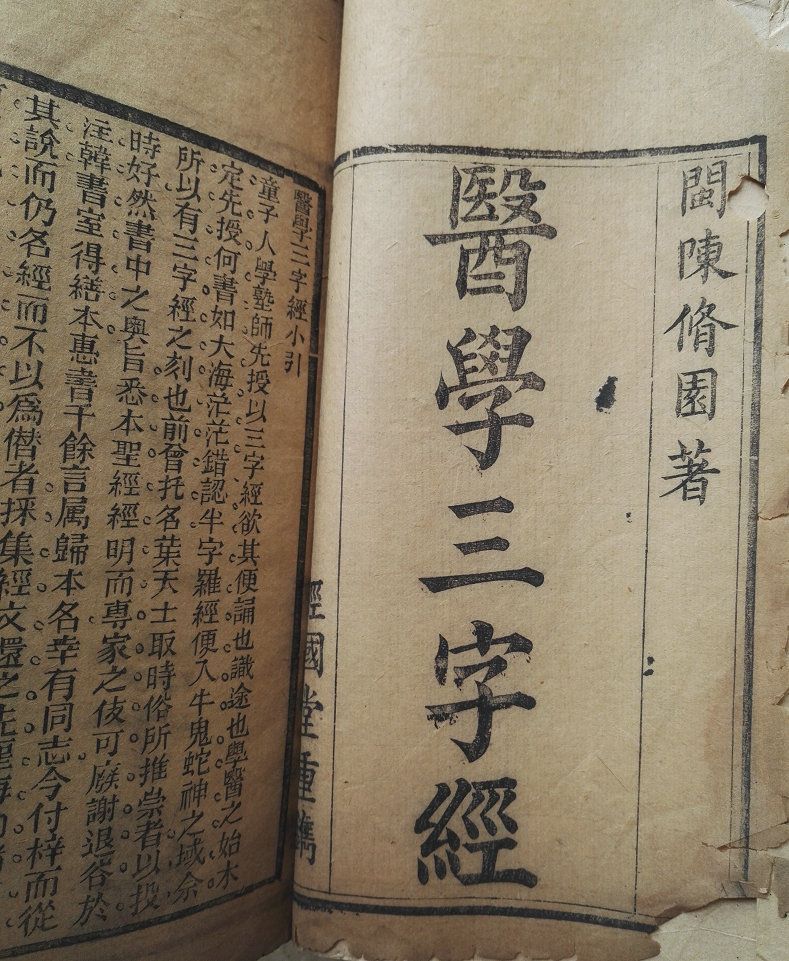 閩陳脩園著
醫學三字經
經國堂重鐫
醫學三字經小引
童子入學塾師先授以三字經欲其便誦也識途也學醫之始未
定先授何書如大海茫茫錯認半字羅經便入牛鬼蛇神之域余
所以有三字經之刻也前曾托名葉天士取時俗所推崇者以投
時好然書中之奧旨悉本聖經經明而專家之伎可廢謝退谷於
注韓書室得繕本惠書千餘言属歸本名幸有同志今付梓而從
其說而仍名經而不以為僭者採集經文還之先聖海